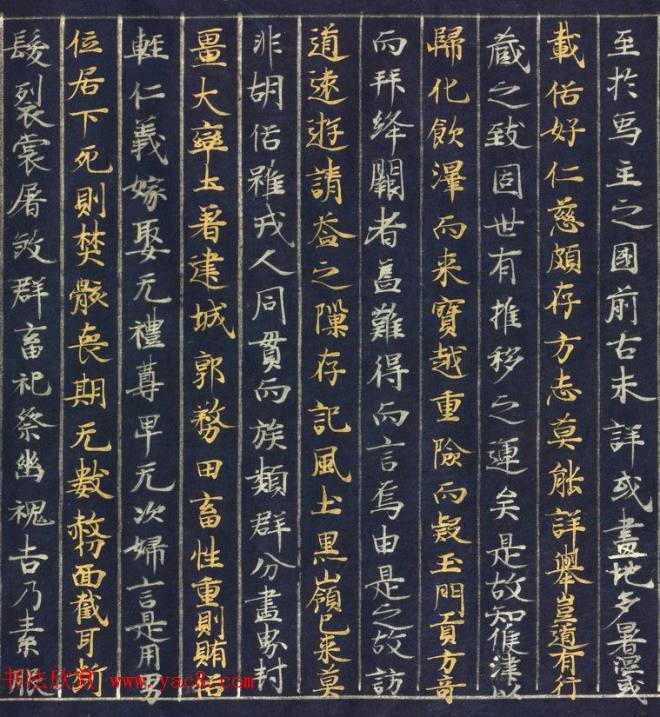 至於馬主之國前古未詳或畫地多暑濕或
載俗好仁慈頗存方志莫能詳舉豈道有行
藏之致固世有推移之運矣是故知候津以
歸化飲澤而来賓越重險而欵玉門貢方竒
而拜絳闕者葢難得而言焉由是之故訪
道遠遊請益之隟存記風土黒嶺已来莫
非胡俗雖戎人同貫而族類群分畫界封
畺大率土著建城郭務田畜性重財賄俗
輕仁義嫁娶无禮尊卑无次婦言是用男
位居下死則焚骸喪期无數剺面截耳斷
髮裂裳屠殺群畜祀祭幽魂吉乃素服
书法欣赏 www.yac8.com